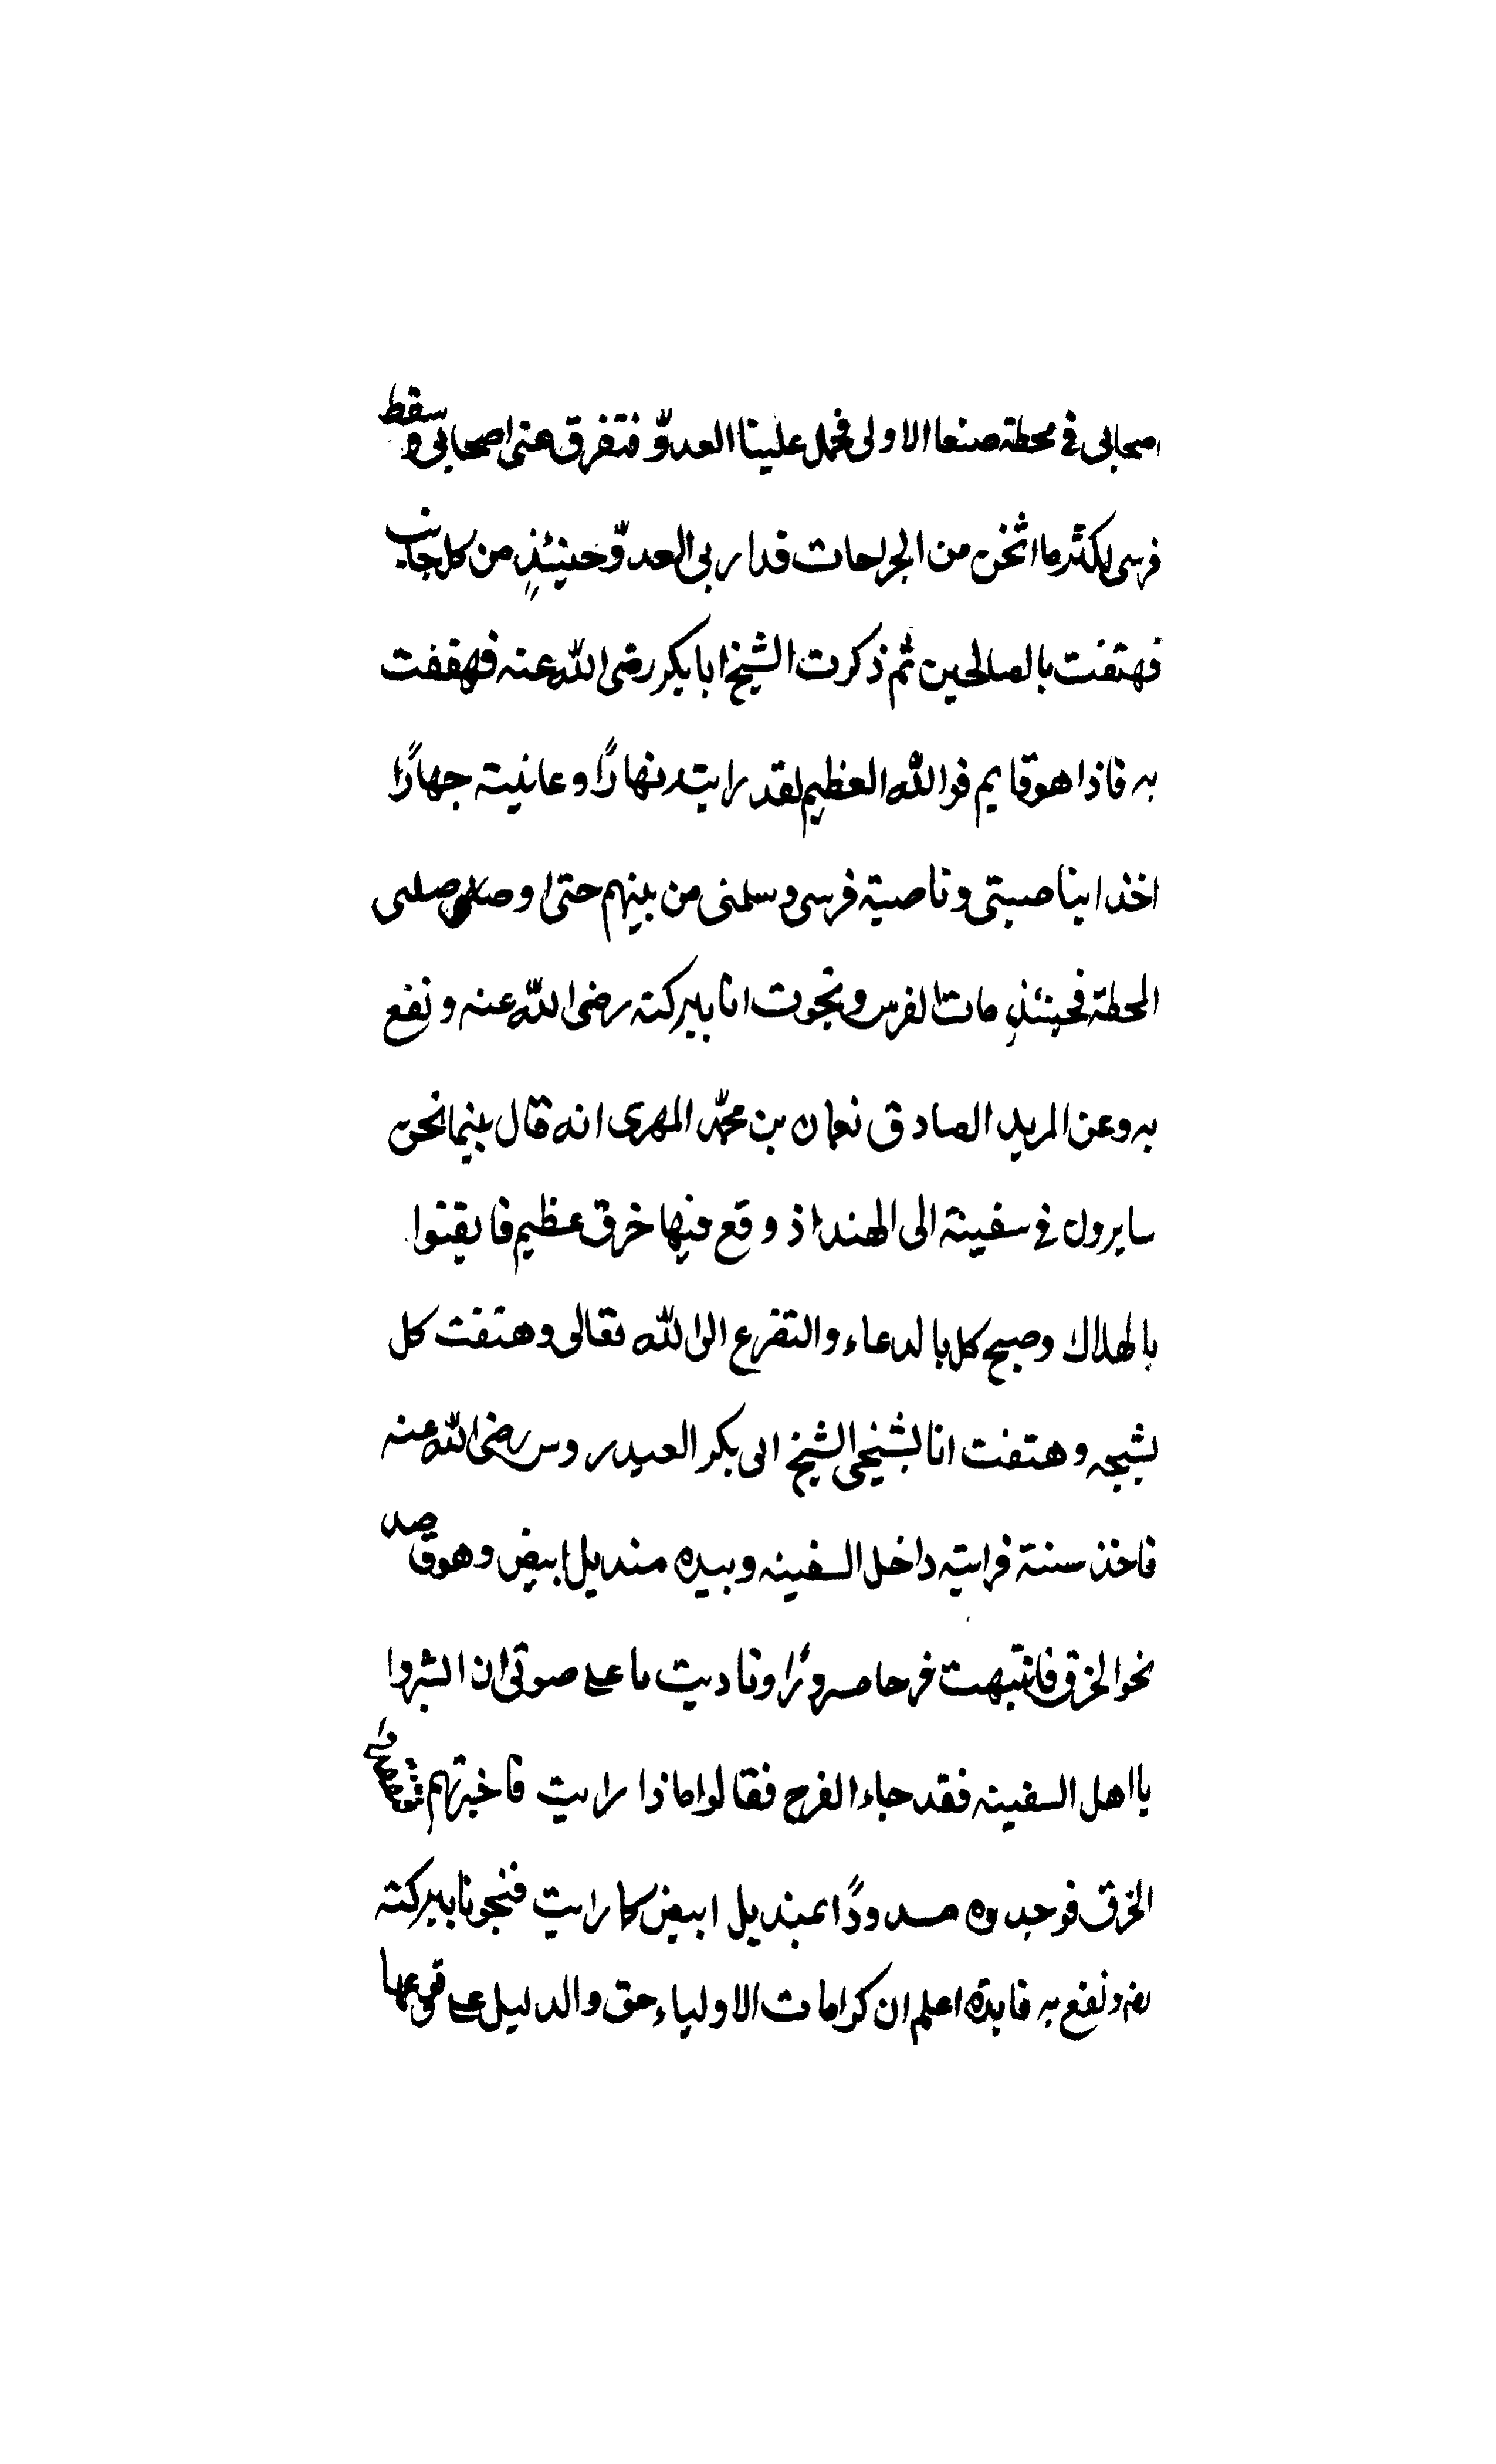 اصحابى فى محطة صنعا الاولى فحمل علينا العدوّ فتفرق عنى اصحابى وسقط
فرسى لكثر ما اثخن من الجراحات فدار بى العدوّ حينئذٍ من كل جانب
فهتفت بالصالحين ثم ذكرت الشيخ ابا بكر رضى الله عنه فهتفت
به فاذا هو قايم فوالله العظيم لقد رايته نهارًا وعاينته جهارًا
اخذا بناصيتى وناصية فرسى وسلمنى من بينهم حتى اوصلنى
المحطة فحينئذٍ مات الفرس ونجوت انا ببركته رضى الله عنه ونفع
به وعن المريد الصادق نعمان بن محمد المهرى انه قال بينما نحن
سايرون فى سفينة الى الهند اذ وقع فيها خرق عظيم فايقنوا
بالهلاك وصيح كل بالدعاء والتضرع الى الله تعالى وهتفت كل
بشيخه وهتفت انا بشيخى الشيخ ابى بكر العيدروس رضى الله عنه
فاخذ سنة فرايته داخل السفينه وبيده منديل ابيض وهو قاصد
نحو الخرق فانتبهت فرحا مسرورًا وناديت باعلى صوتى ان ابشروا
يا اهل السفينه فقد جاء الفرح فقالوا ماذا رايت فاخبرتهم
الخرق فوجدوه مسدودًا بمنديل ابيض كما رايت فنجونا ببركته
رضه ونفع به فايدة اعلم ان كرامات الاولياء حق والدليل على وقوعها